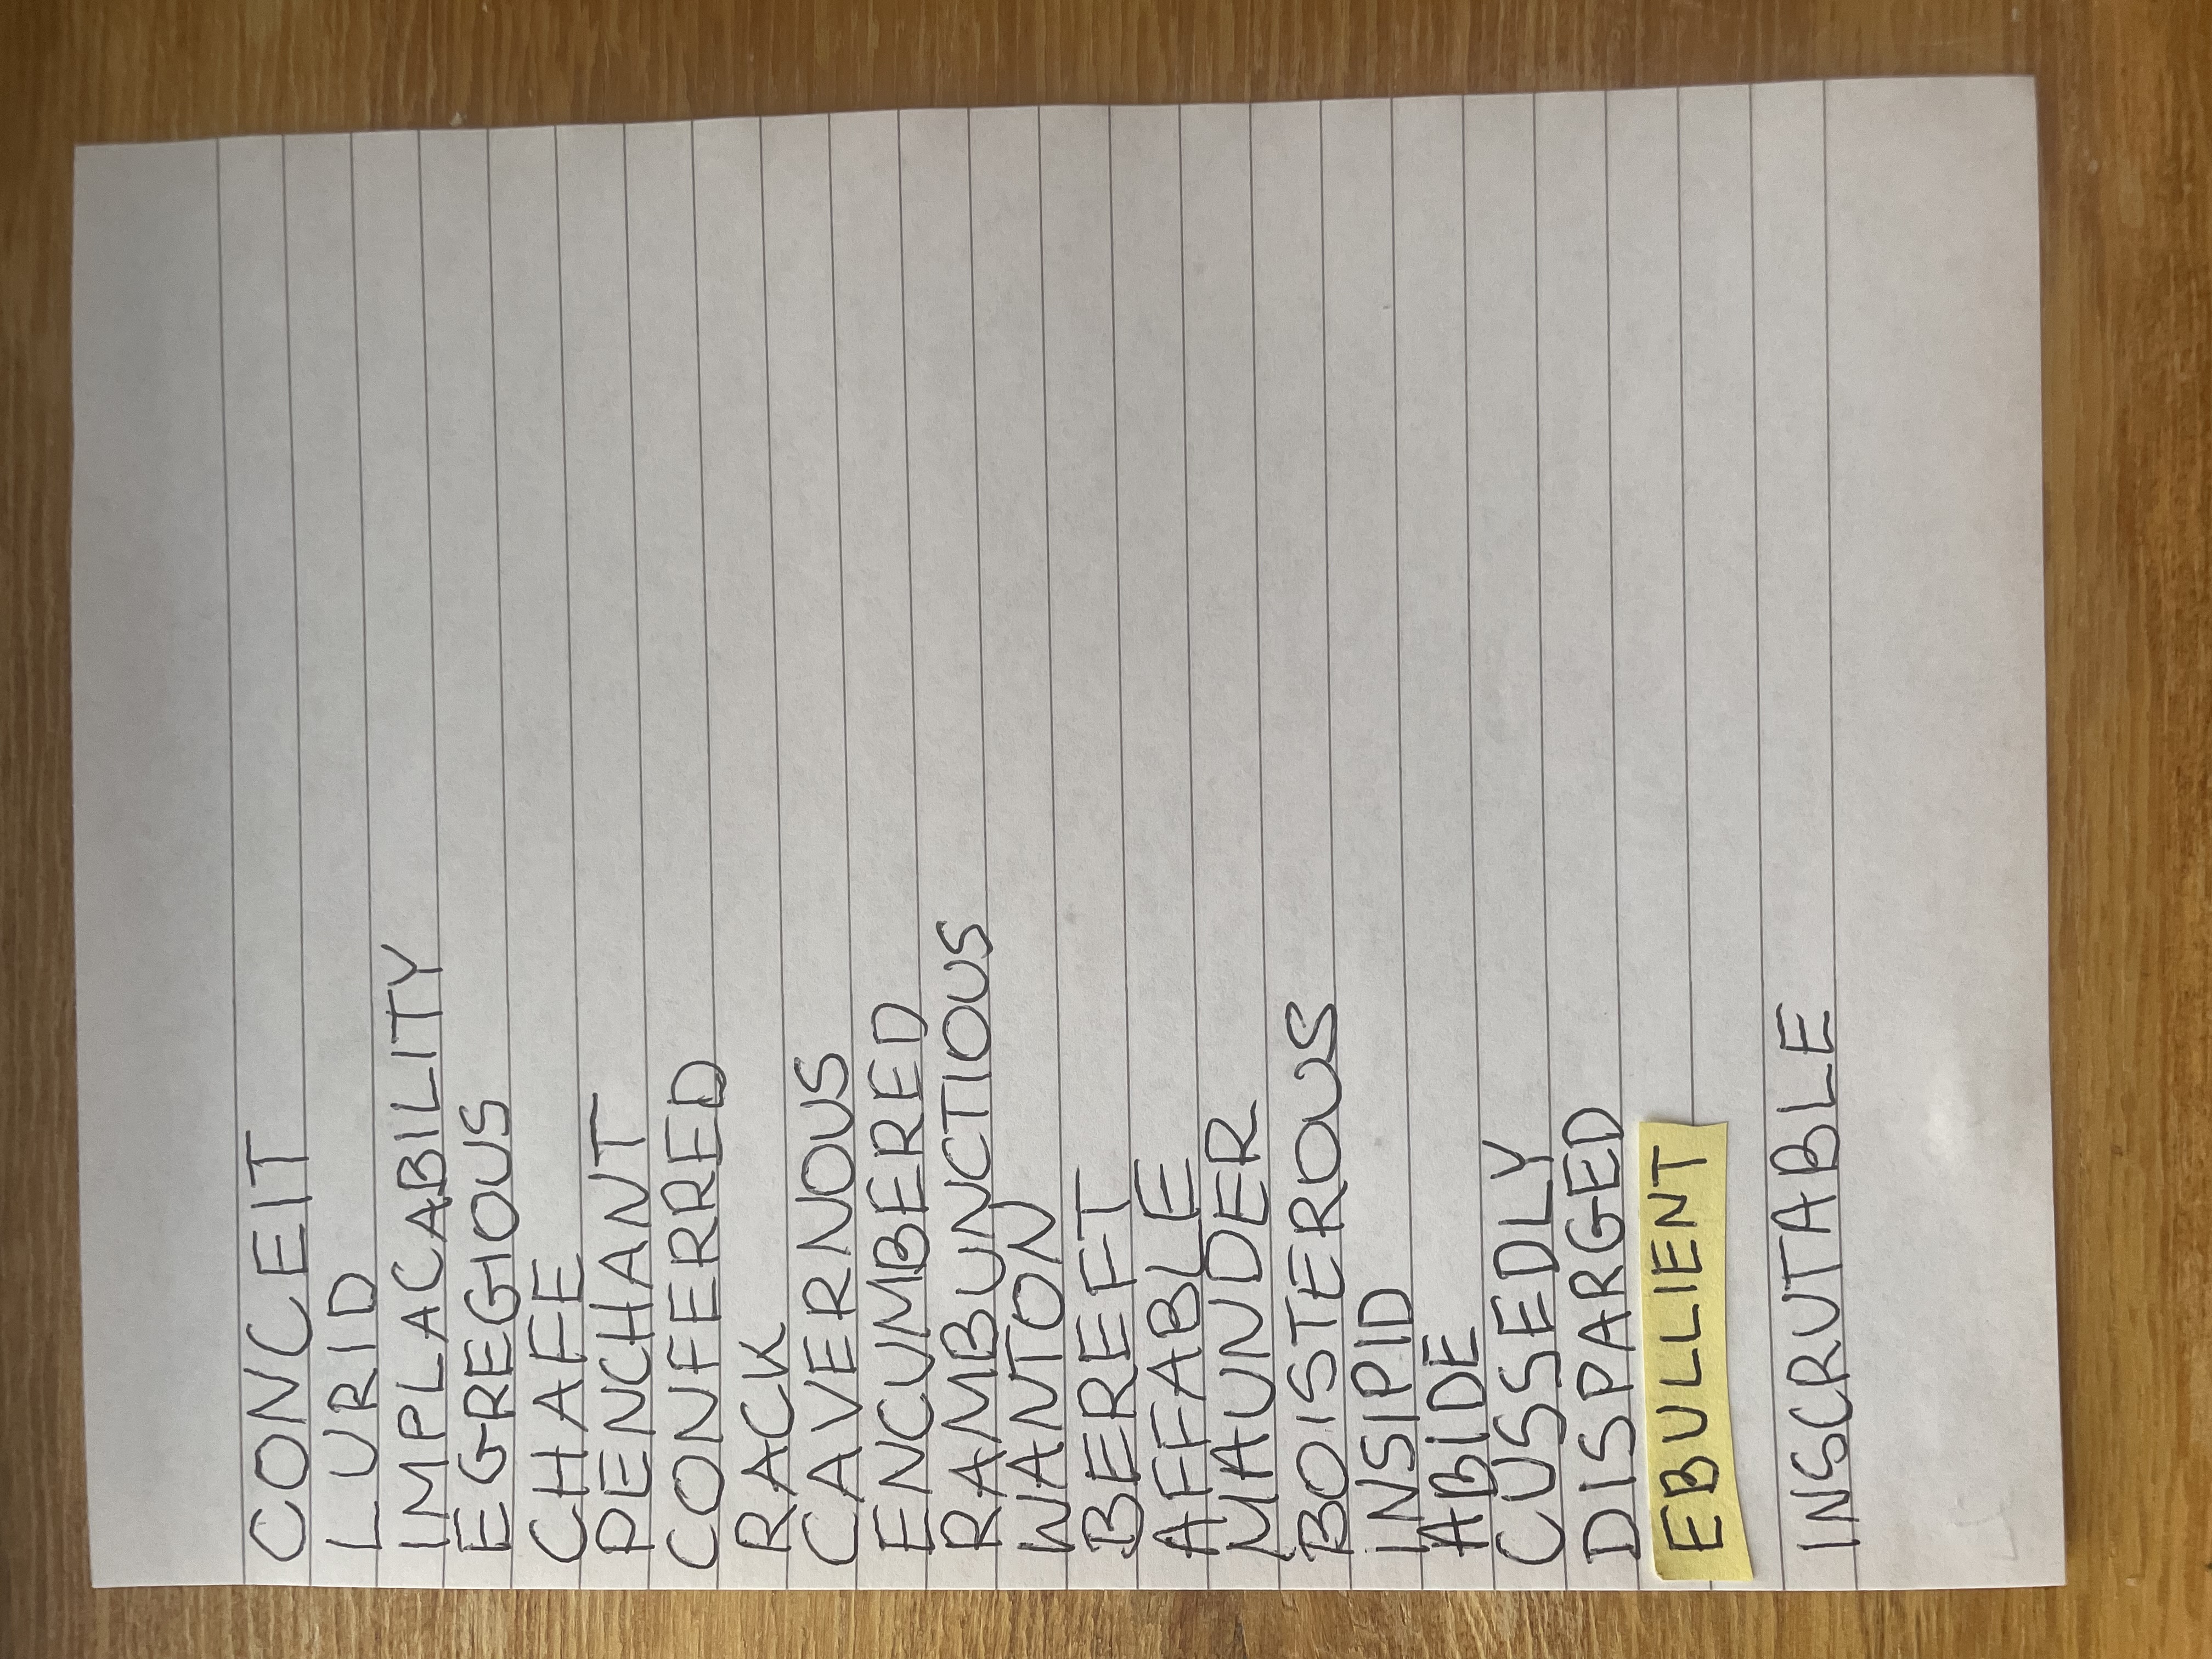 CONCEIT
LURID
IMPLACABILITY
EGREGIOUS
CHAFE
PENCHANT
CONFERRED
RACK
CAVERNOUS
ENCUMBERED
RAMBUNCTIOUS
WANTON
BEREFT
AFFABLE
MAUNDER
BOISTEROUS
INSIPID
ABIDE
CUSSEDLY
DISPARGED
EBULLIENT
INSCRUTABLE